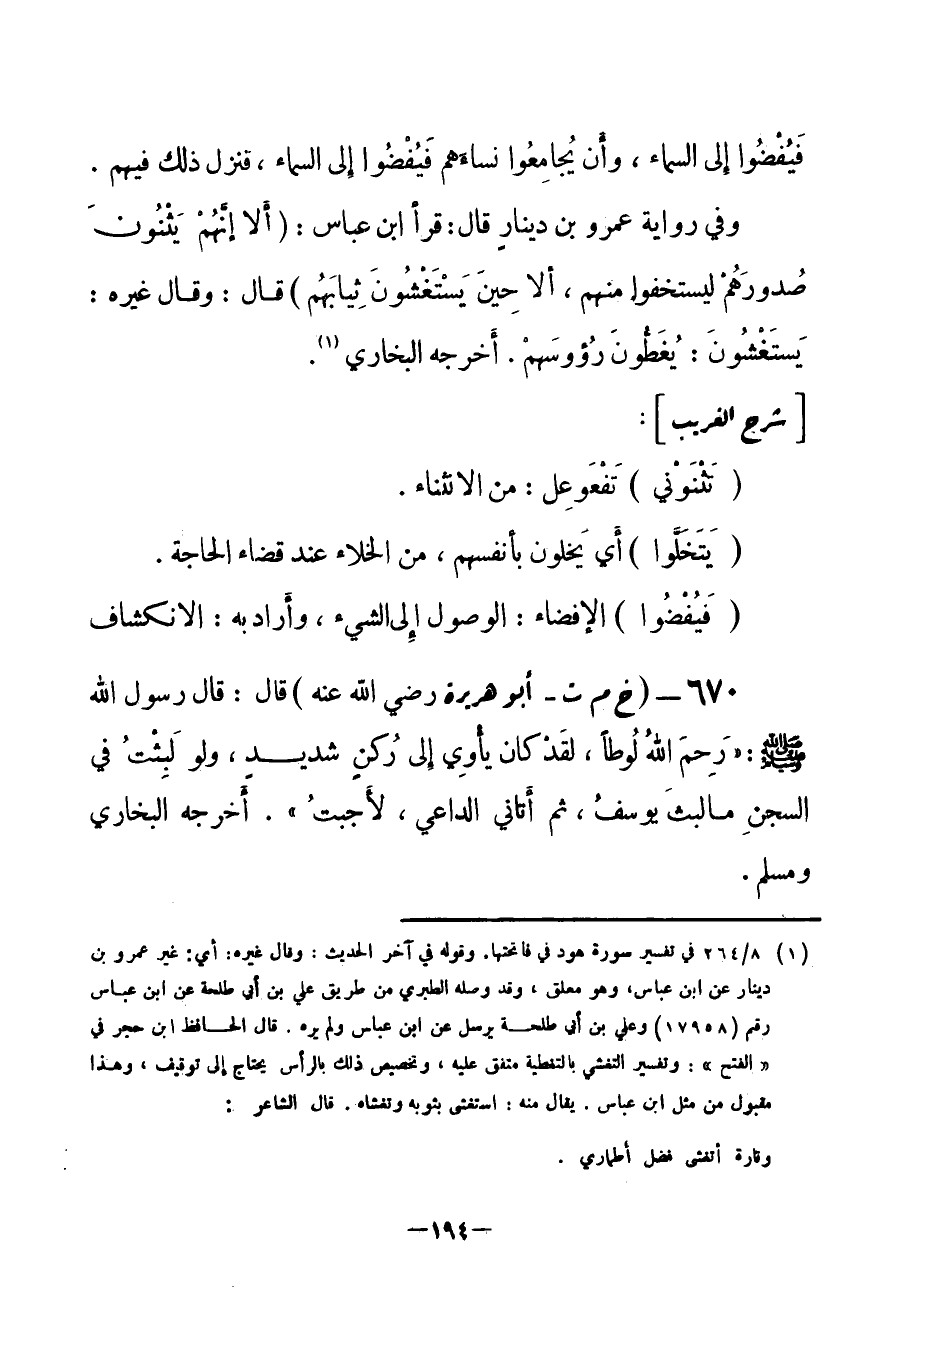 فَيُفْضُوا إلى السماء ، وأَن يُجامِعُوا نساءَهم فَيُفْضُوا إلى السماء ، فنزل ذلك فيهم .
وفي رواية عمرو بن دينارٍ قال: قرأ ابن عباس : ( أَلا إنَّهُمْ يَثْنُونَ
صُدورَهُمْ ليستخفوا منهم ، ألا حِينَ يَسْتَغْشُونَ ثِيابَهُم ) قال : وقال غيره :
يَستَغْشُونَ : يُغَطُّونَ رُؤوسَهمْ . أَخرجه البخاري (١).
[ شرح الغريب ] :
( تَثْنَوْني ) تَفْعَوعِل : من الانثناء .
( يَتَخَلَّوا ) أَي يَخلون بأنفسهم ، من الخلاء عند قضاء الحاجة .
( فَيُفْضُوا ) الإفضاء : الوصول إلى الشيء ، وأَراد به : الانكشاف
٦٧٠ - ( خ م ت - أبو هريرة رضي الله عنه ) قال : قال رسول الله
ﷺ : « رَحِمَ اللهُ لُوطاً ، لقَدْ كان يأوي إلى رُكنٍ شديدٍ ، ولو لَبِثْتُ في
السجنِ مالبثَ يوسفُ ، ثم أَتاني الداعي ، لأَجبتُ » . أَخرجه البخاري
ومسلم .
(١) ٢٦٤/٨ في تفسير سورة هود في فاتحتها. وقوله في آخر الحديث : وقال غيره: أي: غير عمرو بن
دينار عن ابن عباس، وهو معلق ، وقد وصله الطبري من طريق علي بن أبي طلحة عن ابن عباس
رقم (١٧٩٥٨) وعلي بن أبي طلحة يرسل عن ابن عباس ولم يره . قال الحافظ ابن حجر في
« الفتح » : وتفسير التغشي بالتغطية متفق عليه ، وتخصيص ذلك بالرأس يحتاج إلى توقيف ، وهذا
مقبول من مثل ابن عباس . يقال منه : استغشى بثوبه وتغشاه . قال الشاعر :
وتارة أتغشى فضل أطماري .
-١٩٤-